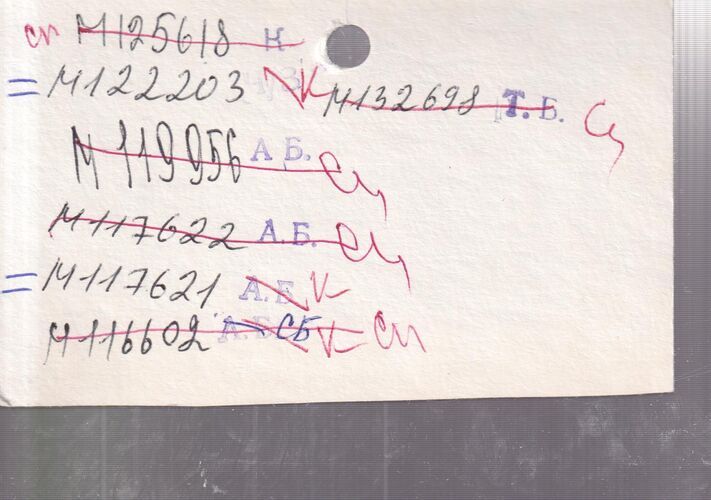 сп М125618 Н
= М122203 К М132698 Т.Б. Сц
М119956 А Б. Сц
М117622 А.Б. Сц
= М117621 А.Б К
М116602 А.Б СБ К Сп